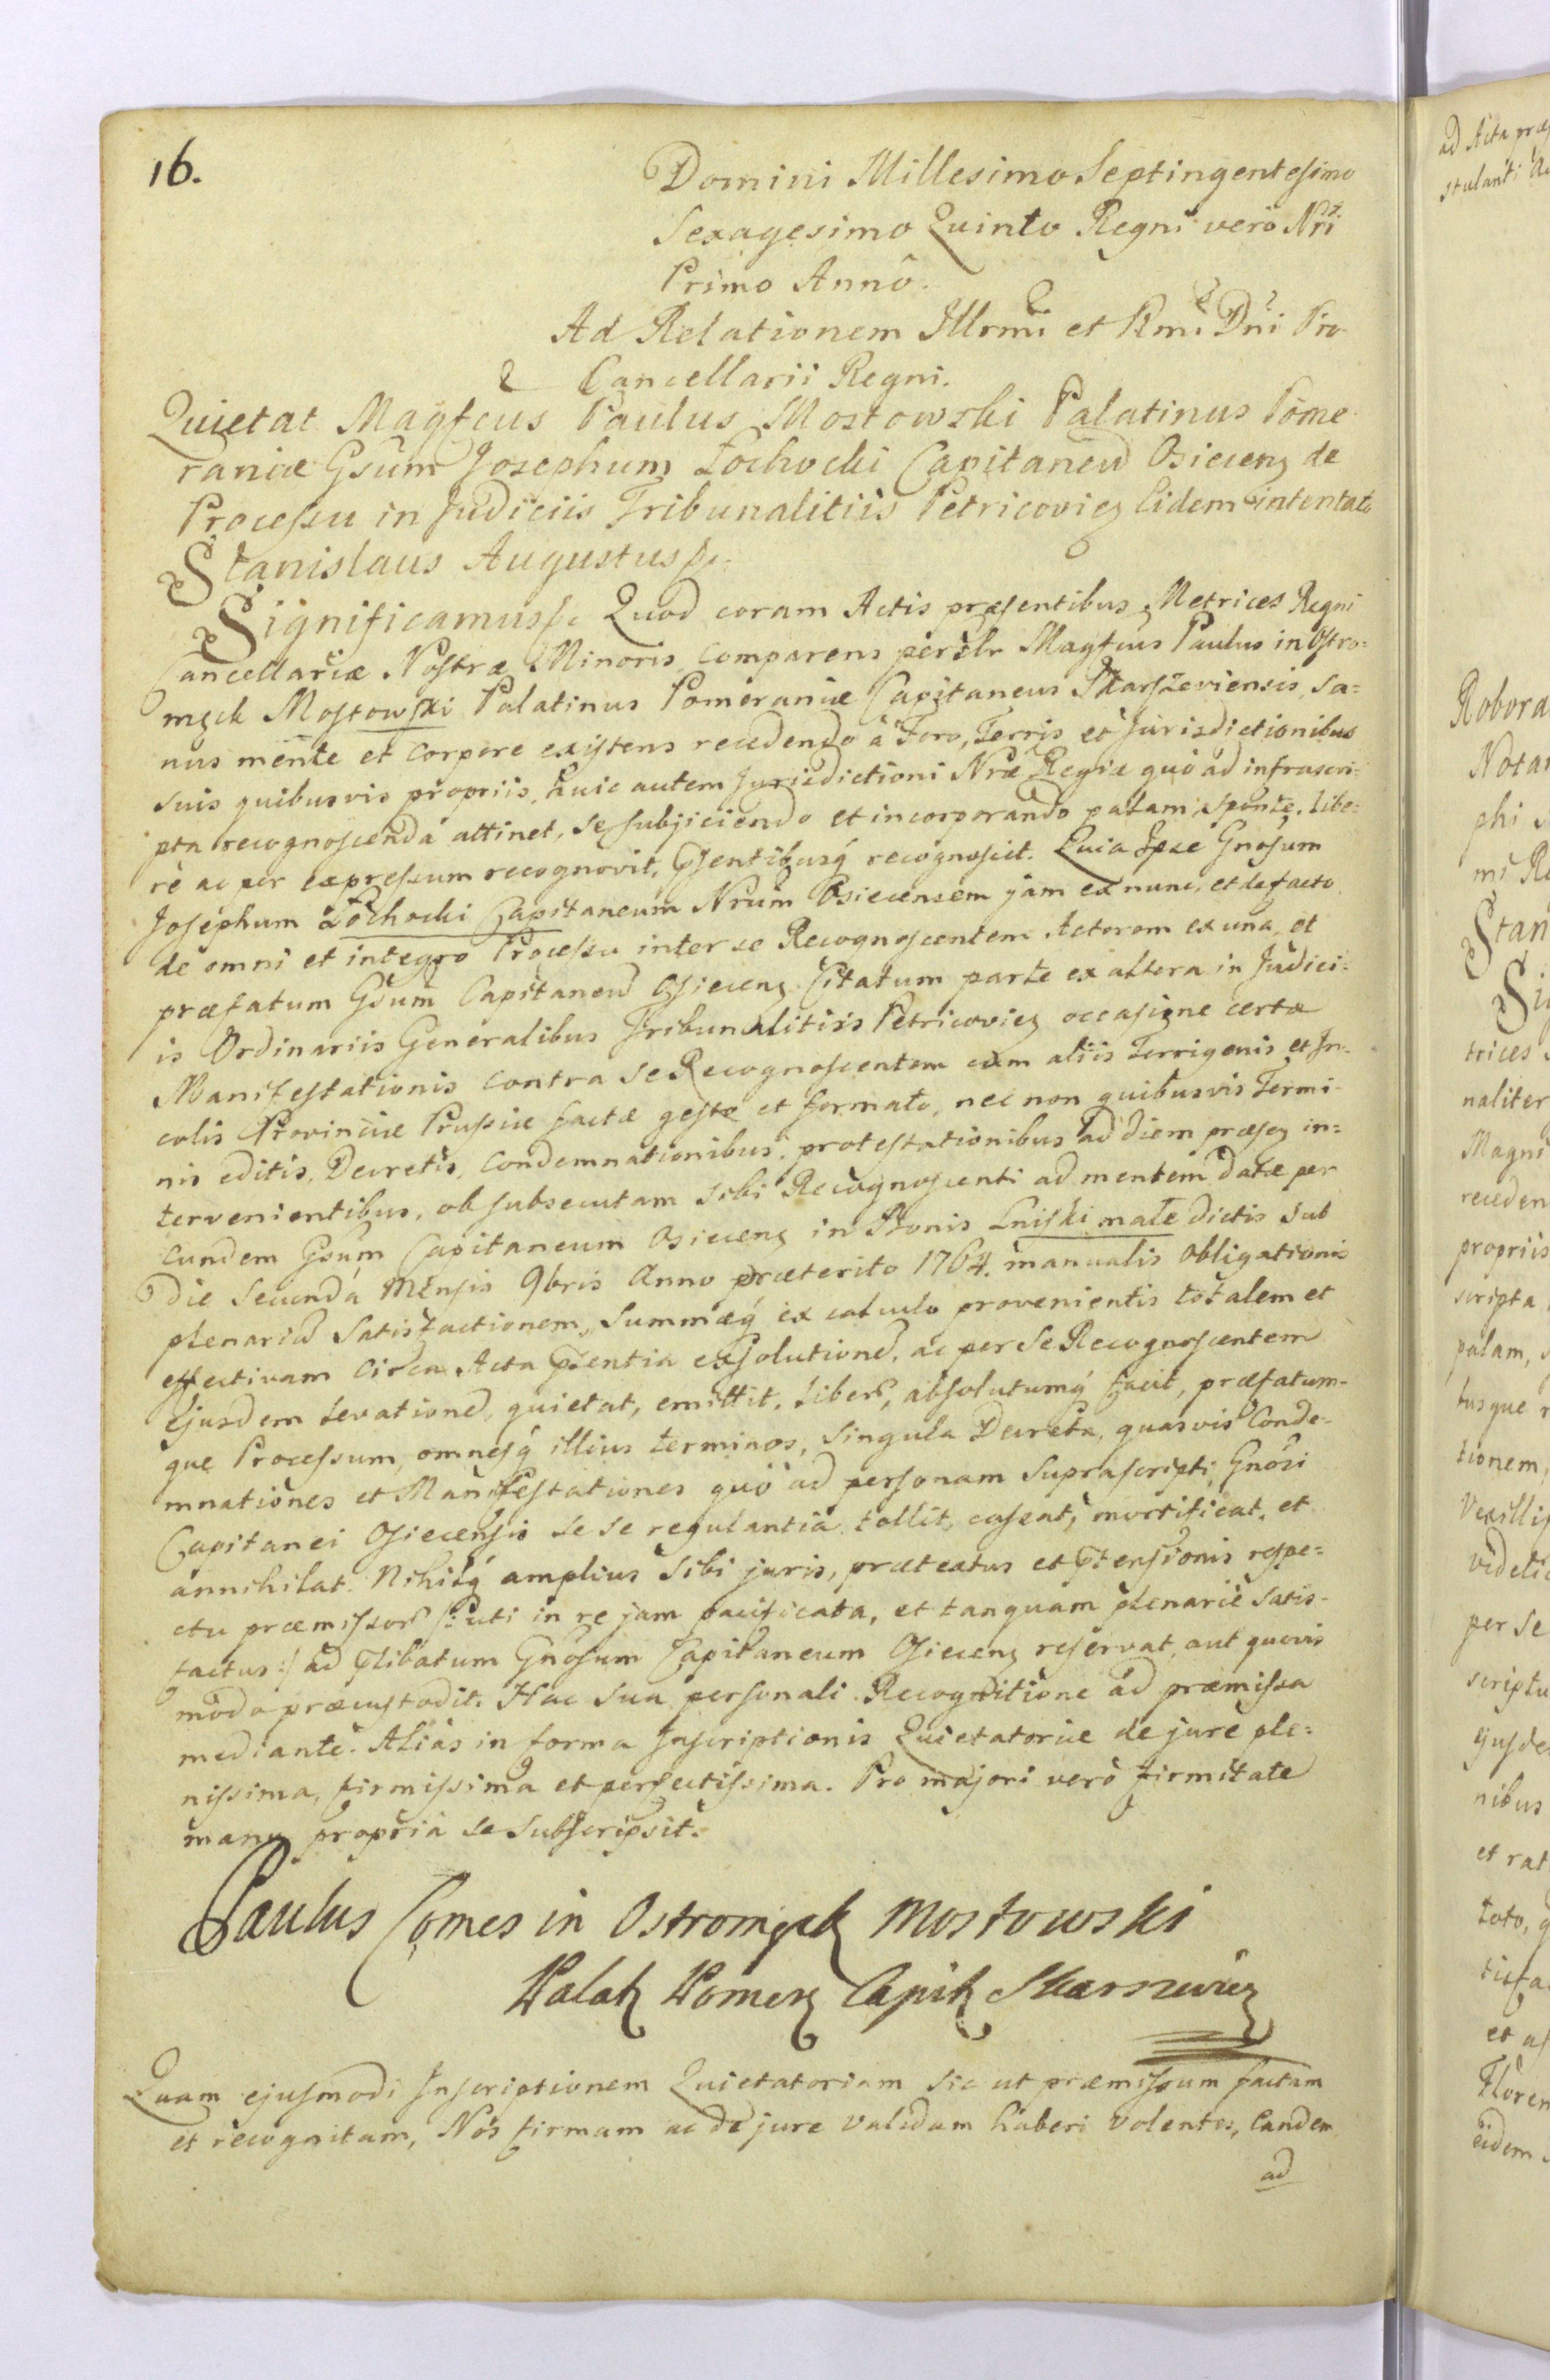 16.
Domini Millesimo Septingentesimo
Sexagesimo Quinto Regni verò Nri
Primo Annô.
Ad Relationem Illrmi et Rmi Dni Pro
Cancellarii Regni.
Quietat Magfcus Paulus Mostowski Palatinus Pome
raniæ Gsum Josephum Łochocki Capitaneum Osiecens de
Processu in Judiciis Tribunalitiis Petricovien Eidem intentato
Stanislaus Augustus
Significamus Quod coram Actis præsentibus Metrices Regni
Cancellariæ Nostræ Minoris comparens perillr Magfcus Paulus in Ostro=
męck Mostowski Palatinus Pomeraniæ Capitaneus Skarszeviensis sa=
nus mente et corpore existens recedendo â Foro, Terris et Jurisdictionibus
suis quibusvis propriis, huic autem Jurisdictioni Nræ Regiæ quò ad infrascri=
pta recognoscenda attinet, se subjiciendo et incorporando palam, sponte, libe=
rè ac per expressum recognovit, psentibusq recognoscit. Quia Ipse Gnosum
Josephum Łochocki Capitaneum Nrum Osiecensem jam ex nunc, et de facto
de omni et integro Processu inter se Recognoscentem Actorem ex una, et
præfatum Gsum Capitaneum Osiecens Citatum parte ex altera in Judici=
is Ordinariis Generalibus Tribunalitiis Petricovien occasione certæ
Manifestationis contra se Recognoscentem cum aliis Terrigenis et In=
colis Provinciæ Prussiæ factæ gestæ et formato, nec non quibusvis Termi=
nis editis, Decretis, Condemnationibus, protestationibus ad diem præsen in=
tervenientibus, ob subsecutam sibi Recognoscenti ad mentem datæ per
eundem Gsum Capitaneum Osiecens in Bonis Lniski małe dictis sub
die secunda Mensis 9bris Anno præterito 1764. manualis obligationis
plenariam Satisfactionem, Summæq ex calculo provenientis totalem et
effectivam circa Acta psentia exsolutionem, ac per se Recognoscentem
ejusdem levationem, quietat, emittit, liberum, absolutumq facit, præfatum=
que Processum, omnesq illius terminos, singula Decreta, quasvis Conde=
mnationes et Manifestationes quò ad personam suprascripti Gnosi
Capitanei Osiecensis se se regulantia tollit, cassat, mortificat, et
annihilat. Nihilq amplius sibi juris, prætextus et ptensionis respe=
ctu præmissor /: uti in re jam pacificata, et tanquam plenariè satis=
factus :/ ad plibatum Gnosum Capitaneum Osiecens reservat, aut quovis
modo præcustodit. Hac sua personali Recognitione ad præmissa
mediante. Aliàs in forma Inscriptionis Quietatoriæ de jure ple=
nissima, firmissima et perfectissima. Pro majori verò firmitate
manu propria se subscripsit.
Paulus Comes in Ostromęck Mostowski
Palat Pomer Capit Skarszevien
Quam ejusmodi Inscriptionem Quietatoriam sic ut præmissum factam
et recognitam, Nos firmam ac de jure validam haberi volentes, Eandem
ad
ad Acta præs
stulanti
Robora
Nota
phi
mi
Stan
Si
trices
naliter
Magni
receden
propriis
scripta
palam,
tusque
tionem,
Vexilli
videli
per se
scriptu
ejusde
nibus
et rat
toto,
tisfa
et
Floren
eidem